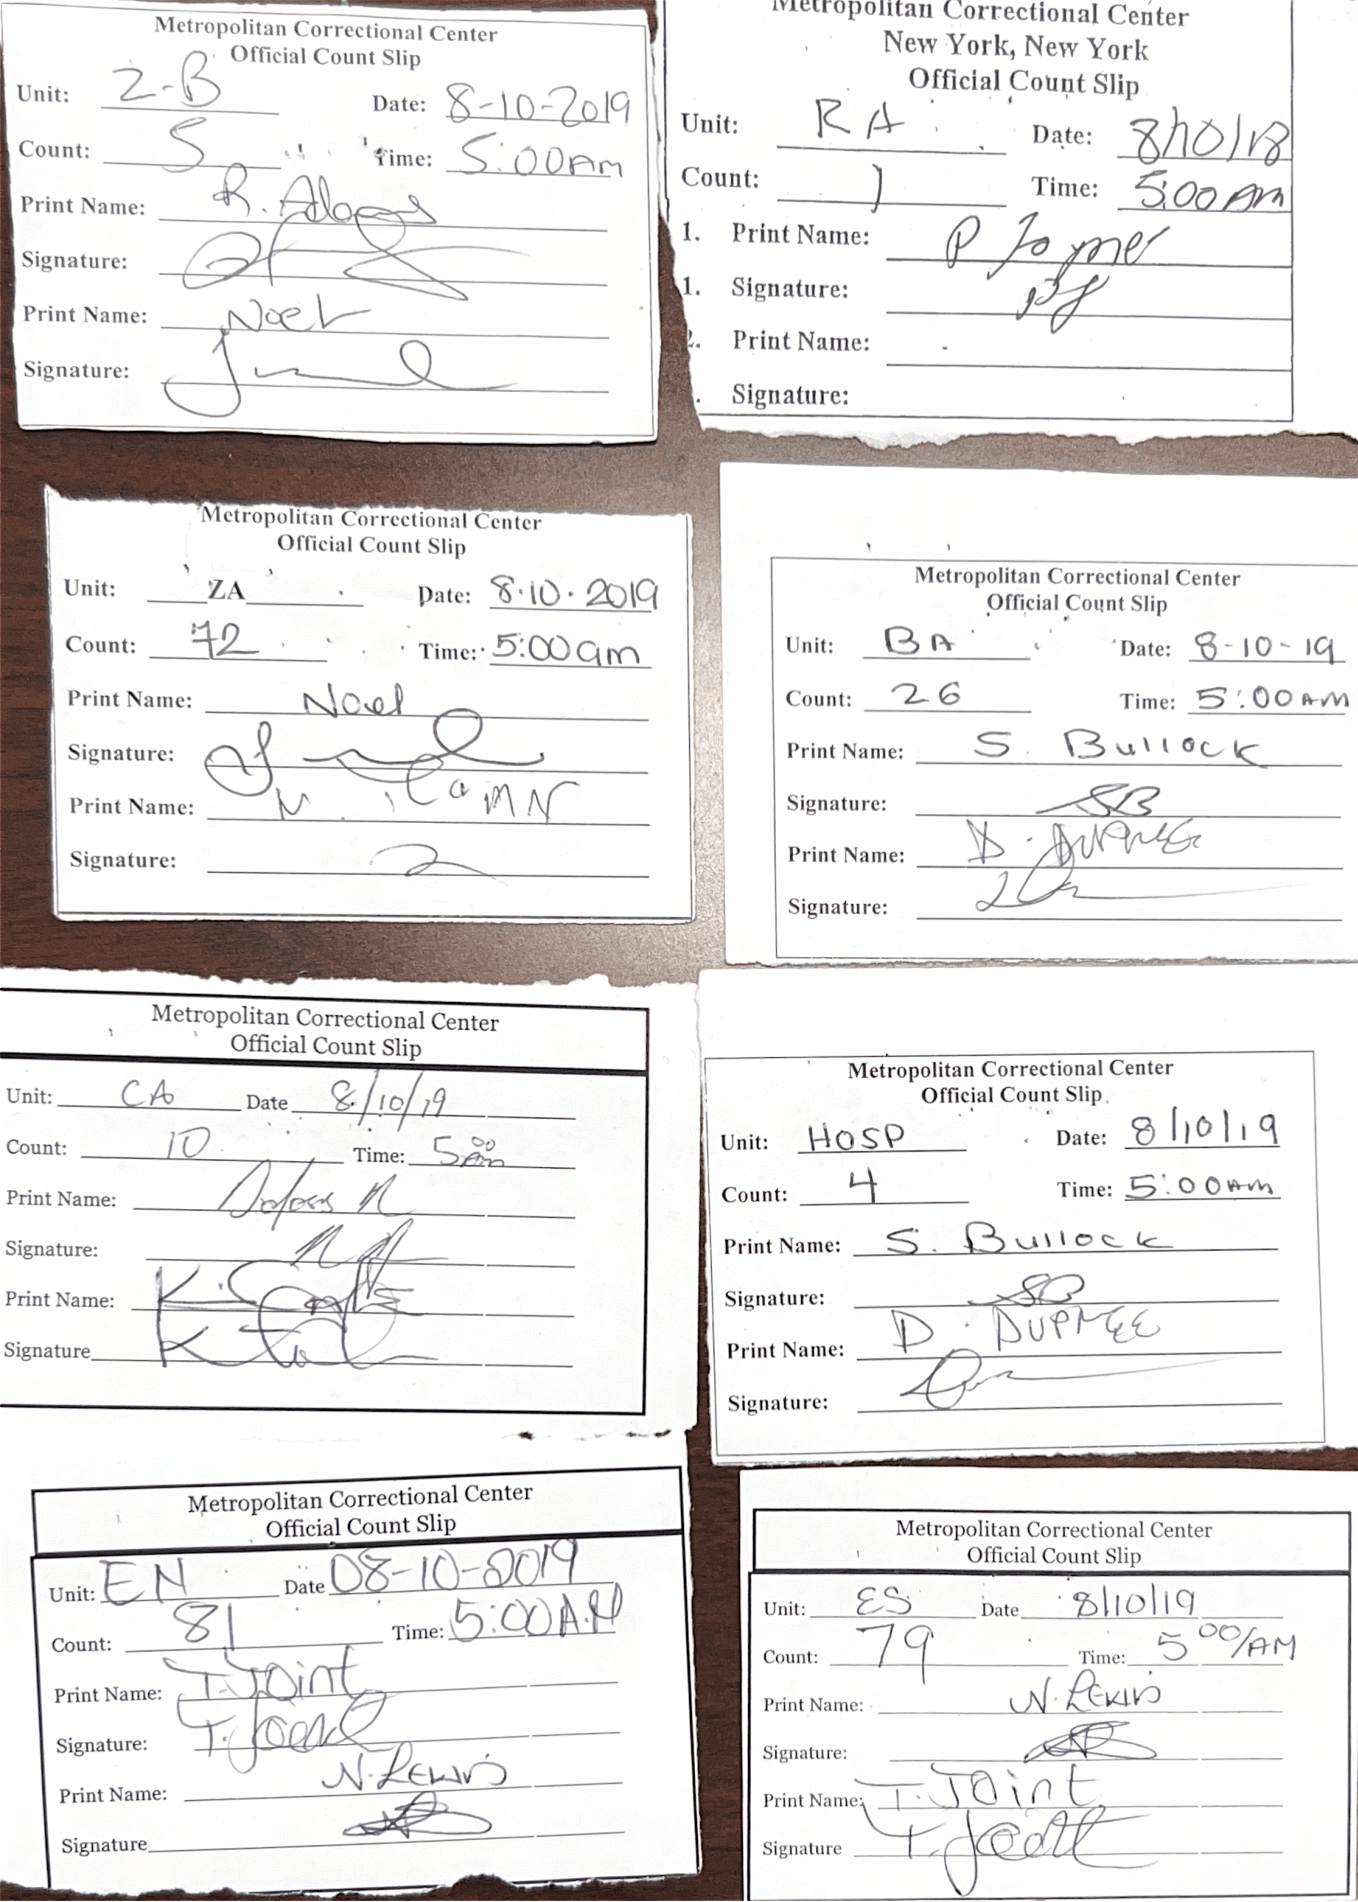 Metropolitan Correctional Center
Official Count Slip
Unit: 2-B Date: 8-10-2019
Count: 5 Time: 5:00AM
Print Name: R. Adams
Signature:
Print Name: Noel
Signature:
Metropolitan Correctional Center
New York, New York
Official Count Slip
Unit: RA Date: 8/10/18
Count: 1 Time: 5:00 Am
1. Print Name: P Joyner
1. Signature: PJ
2. Print Name:
. Signature:
Metropolitan Correctional Center
Official Count Slip
Unit: ZA Date: 8.10.2019
Count: 72 Time: 5:00am
Print Name: Noel
Signature:
Print Name:
Signature:
Metropolitan Correctional Center
Official Count Slip
Unit: BA Date: 8-10-19
Count: 26 Time: 5:00AM
Print Name: S. Bullock
Signature: SB
Print Name: D. DUPREE
Signature:
Metropolitan Correctional Center
Official Count Slip
Unit: CA Date 8/10/19
Count: 10 Time: 5 00 Am
Print Name:
Signature:
Print Name: K.
Signature
Metropolitan Correctional Center
Official Count Slip
Unit: HOSP Date: 8/10/19
Count: 4 Time: 5:00AM
Print Name: S. Bullock
Signature: SB
Print Name: D. DUPREE
Signature:
Metropolitan Correctional Center
Official Count Slip
Unit: EN Date 08-10-2019
Count: 81 Time: 5:00A.M
Print Name: T. Joint
Signature:
Print Name: N. Lewis
Signature
Metropolitan Correctional Center
Official Count Slip
Unit: ES Date 8/10/19
Count: 79 Time: 5 00/AM
Print Name: N. Lewis
Signature:
Print Name: T. Joint
Signature